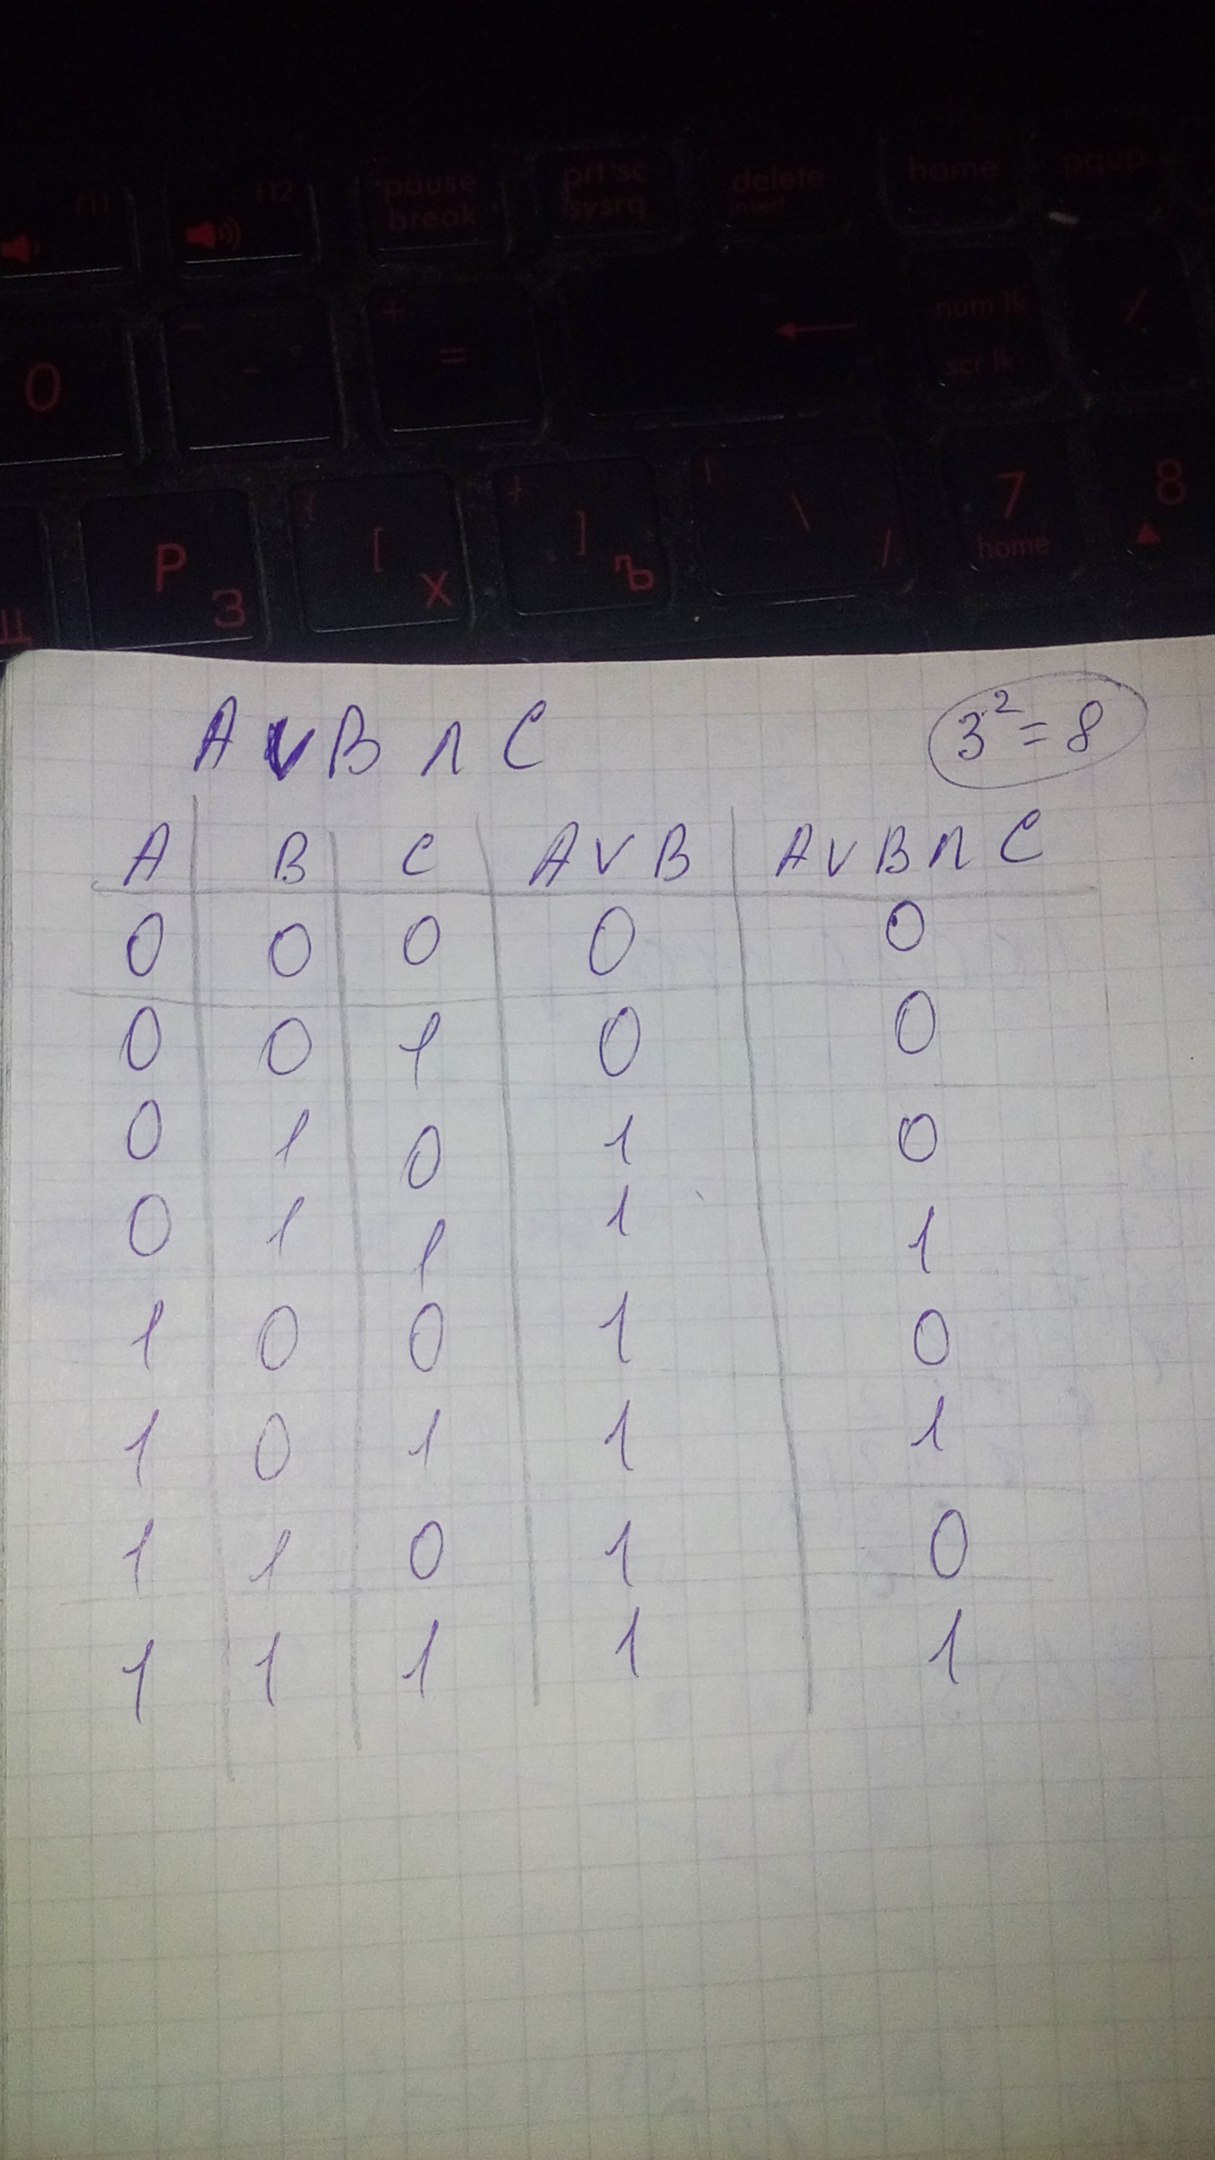 f11 f12 pause break prt sc sysrq delete insert home pgup
0 - - + = num lk scr lk /
Щ P З { [ Х } ] Ъ | \ / 7 home 8
A v B ∧ C 3² = 8
A B C A v B A v B ∧ C
0 0 0 0 0
0 0 1 0 0
0 1 0 1 0
0 1 1 1 1
1 0 0 1 0
1 0 1 1 1
1 1 0 1 0
1 1 1 1 1